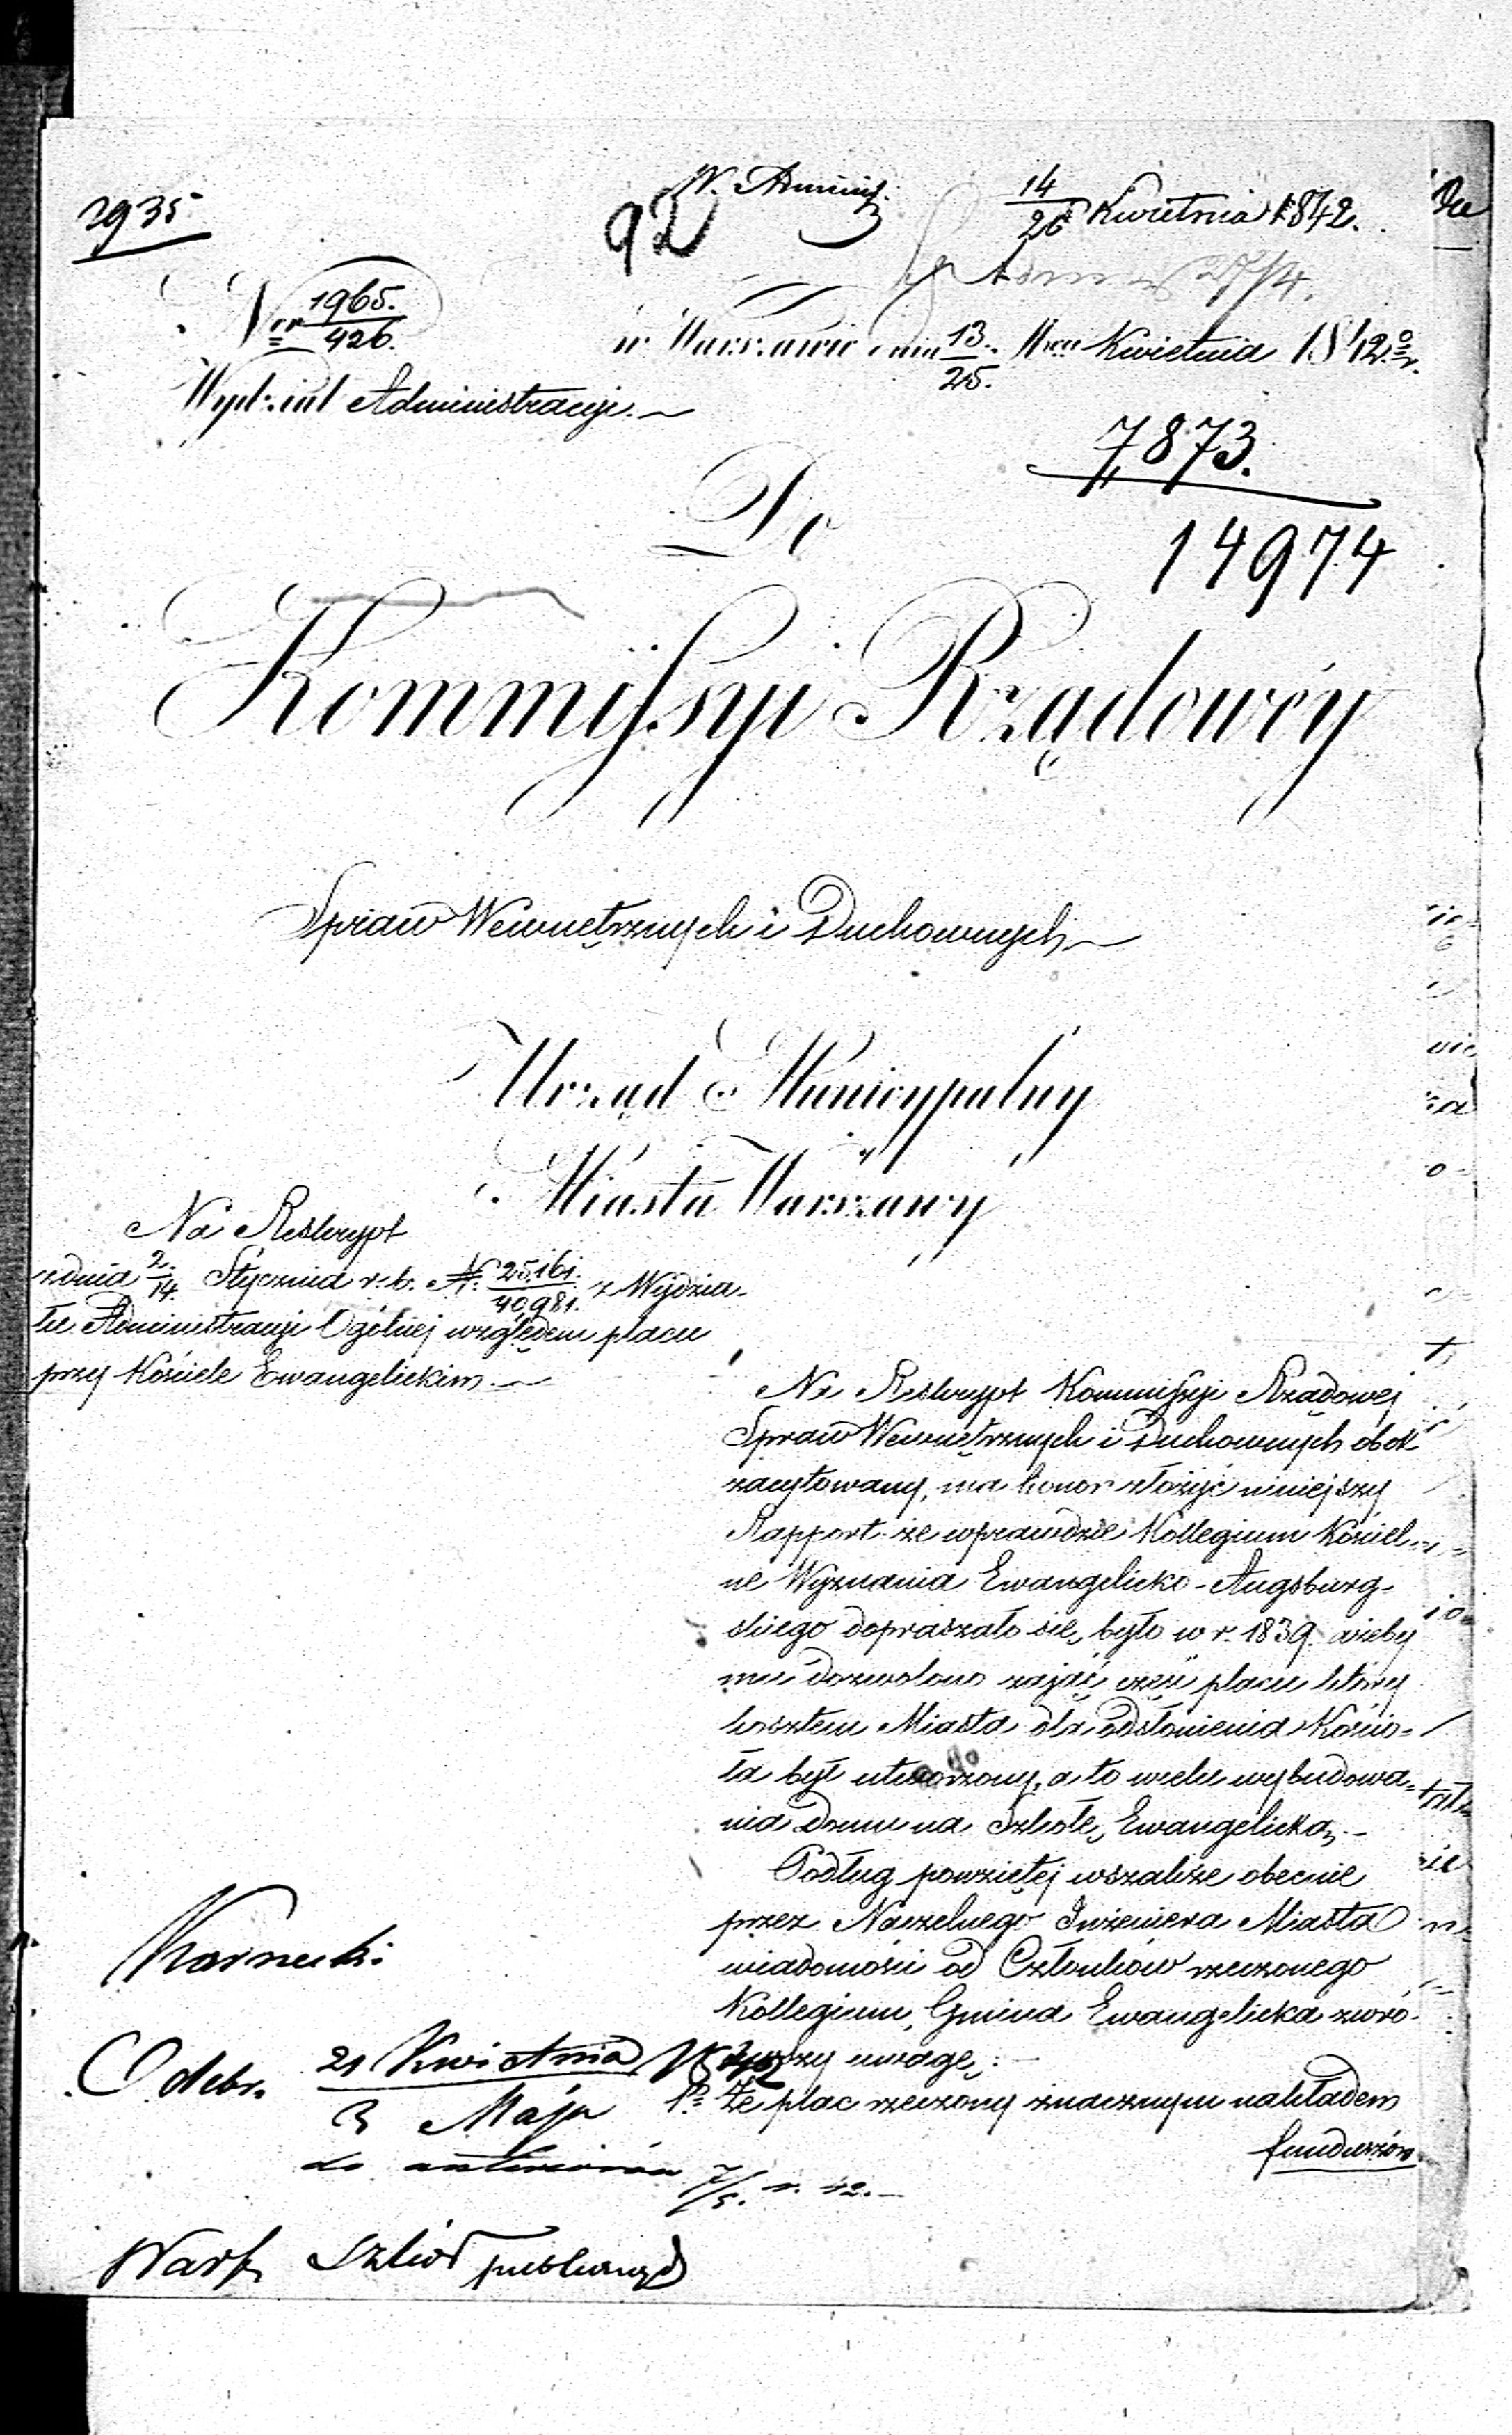 2935
92
W. Administ.
14/26 Kwietnia 1842.
27/4.
Nro 1965./426.
w Warszawie dnia 13./25. Mca Kwietnia 1842o r.
Wydział Administracyi.
7873.
14974
Do
Kommissyi Rządowéy
Spraw Wewnętrznych i Duchownych
Urząd Municypalny
Miasta Warszawy
Na Reskrypt
z dnia 2./14. Stycznia r. b. N. 25,161./40,981. z Wydzia-
łu Administracyi Ogólnej względem placu
przy Kościele Ewangelickim.
Na Reskrypt Kommissyi Rządowej
Spraw Wewnętrznych i Duchownych obok
zacytowany, ma honor złożyć niniejszy
Rapport że wprawdzie Kollegium Kościel-
ne Wyznania Ewangelicko-Augsburg-
skiego dopraszało się, było w r. 1839. ażeby
mu dozwolono zająć część placu który
kosztem Miasta dla odsłonienia Kościo-
ła był utworzony, a to w celu wybudowa-
nia domu na Szkołę Ewangelicką.
Podług powziętej wszakże obecnie
przez Naczelnego Inżeniera Miasta
wiadomości od Członków rzeczonego
Kollegium, Gmina Ewangelicka zwró-
ciwszy uwagę:
1o Że plac rzeczony znacznym nakładem
funduszów
Karnecki
Odebr. 21 Kwietnia/3 Maja 1842
7/5. r. 42.